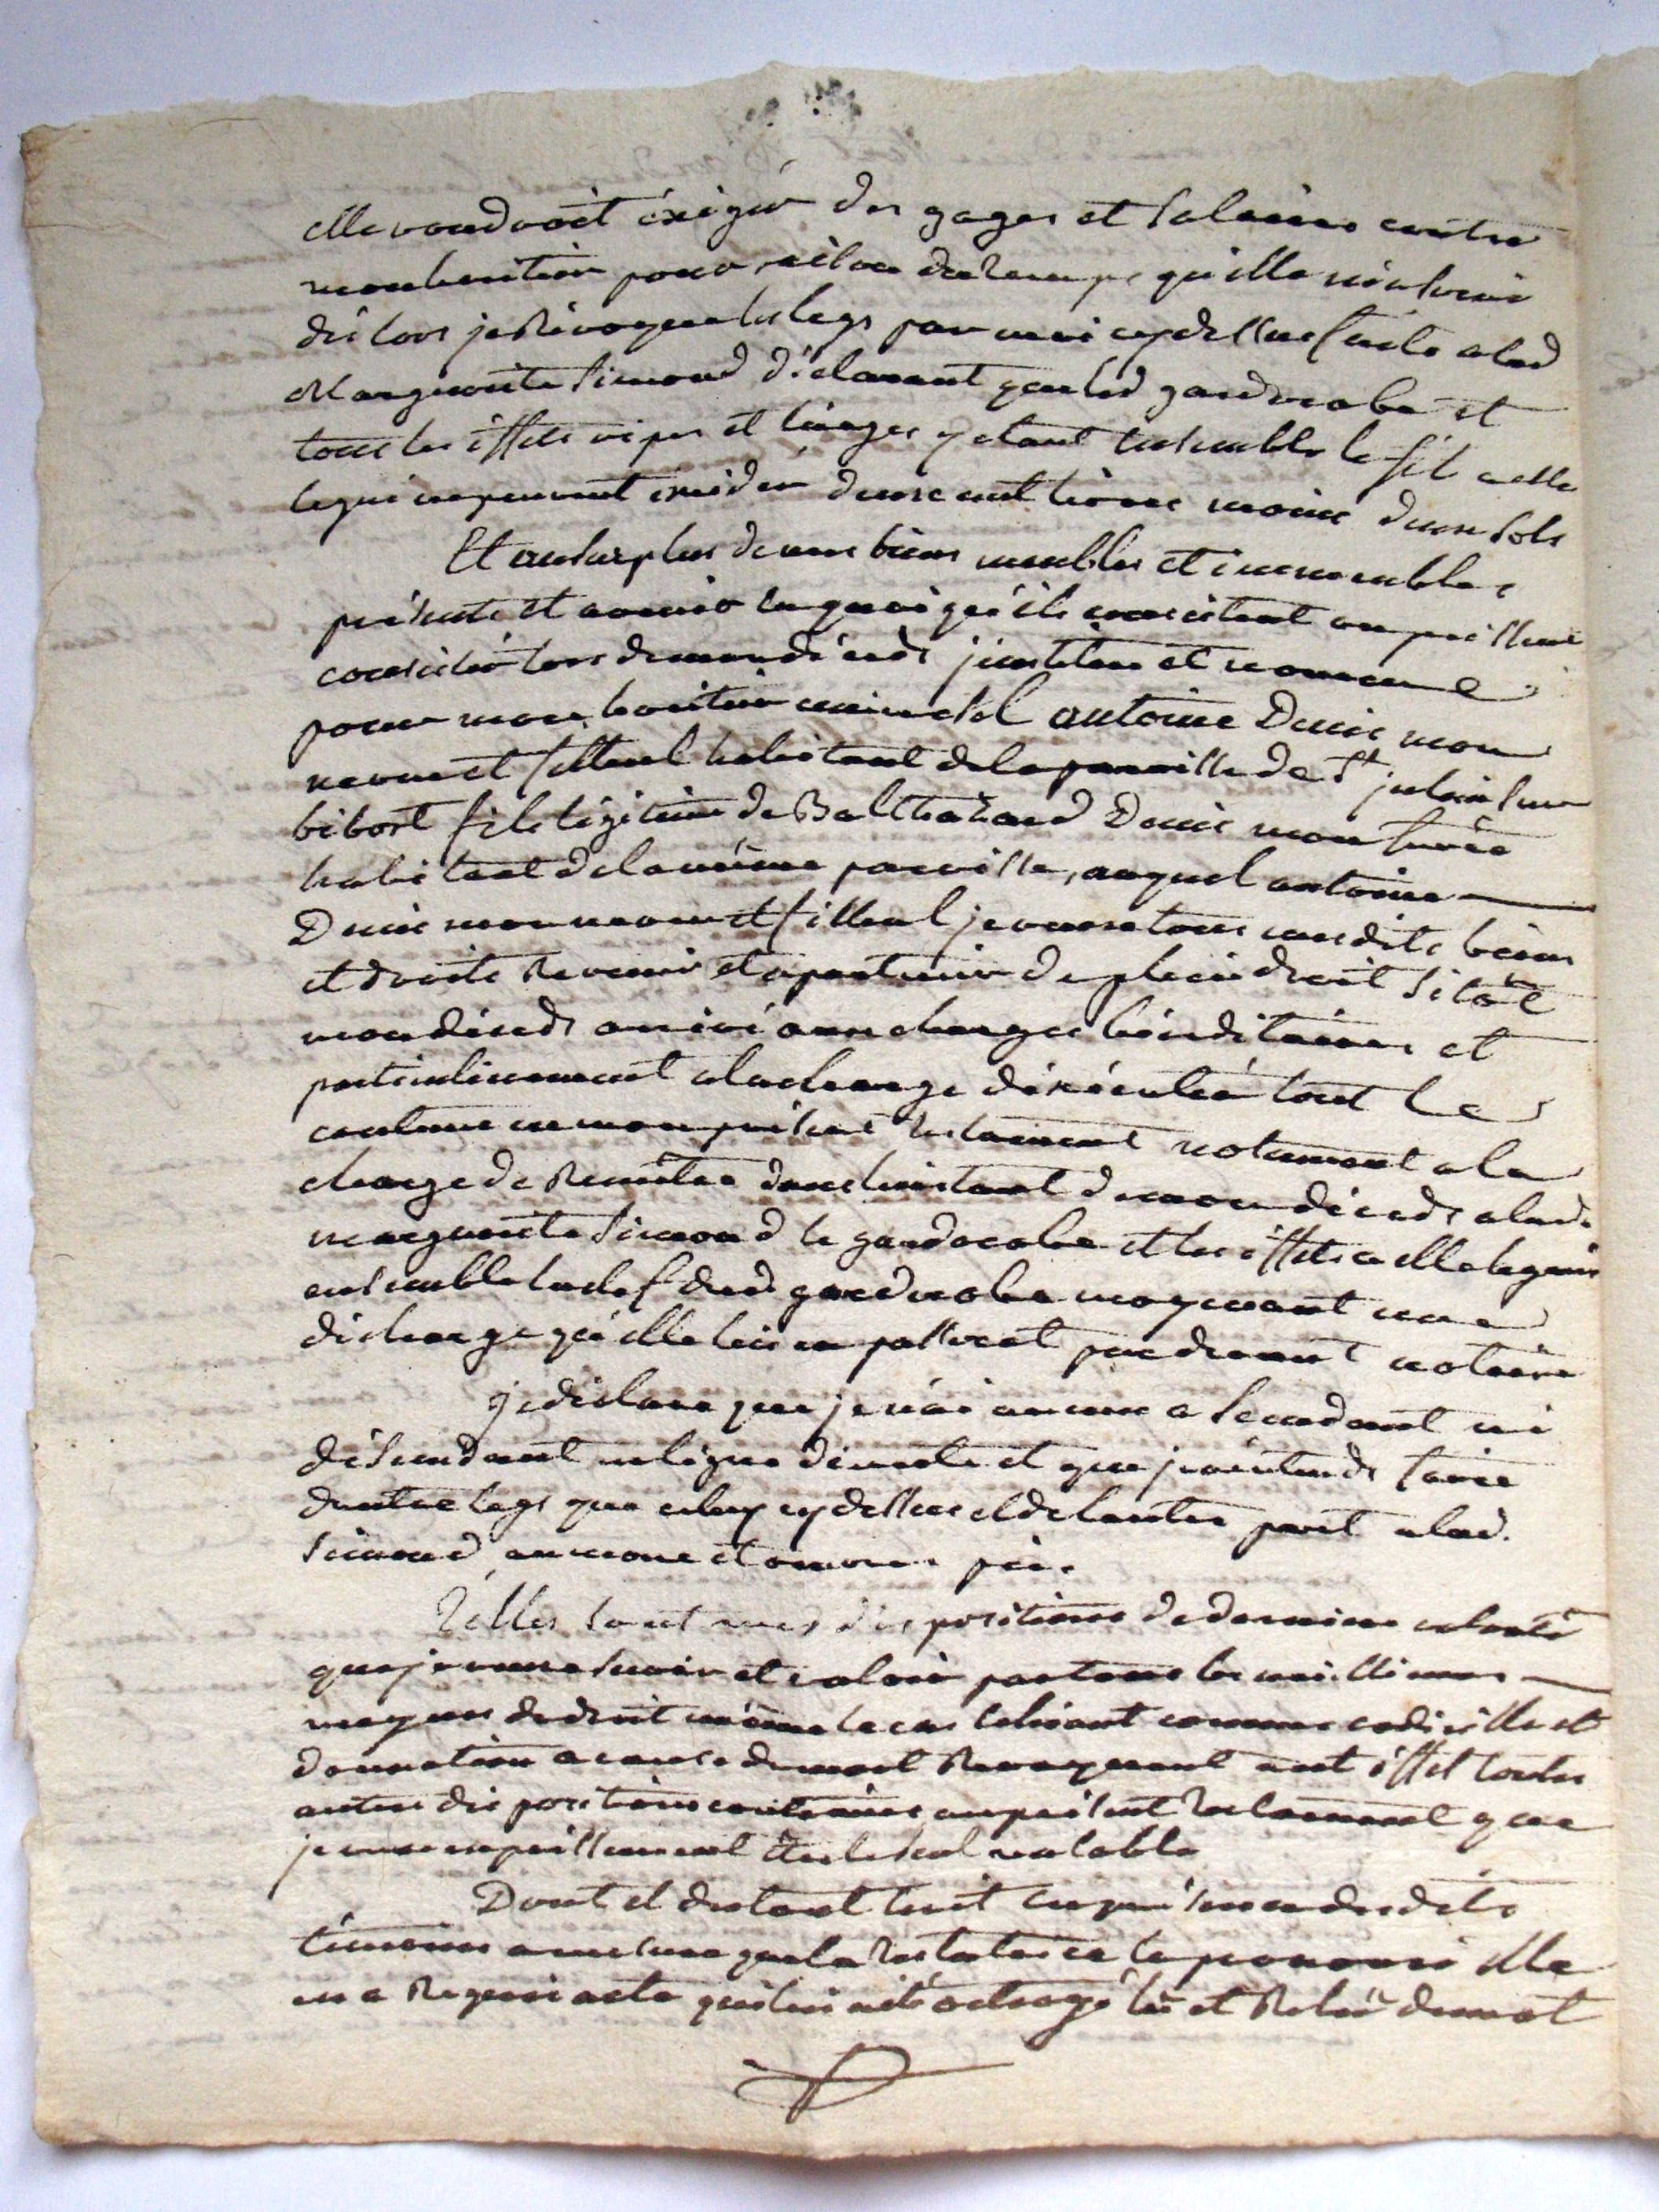 elle voudroit éxigér des gages et salaires contre
mon heritier pour raison du temps qu'elle m'a servie
dès lors je Révoque le legs par moi cy dessus faite alad
Marguerite Simond déclarant que led garderobe et
tous les effets nipes et linges y etant ensemble le fil a elle
legué ne peuvent exceder deux cent livres moins deux sols
Et au surplus de mes biens meubles et immeubles
présents et avenir en quoi qu'ils consistent ou puissent
consister lors de mon décéds j'institue et nomme
pour mon heritier universel antoine Denis mon
neveu et filleul habitant de la paroisse de St julien sur
bibost fils légitime de Balthazard Denis mon frère
habitant de la même paroisse, auquel antoine
Denis mon neveu et filleul je veux tous mesdits biens
et droits Revenir et apartenir de plein droit sitôt
mon décéds arrivé aux charges héréditaires et
particulierement ala charge d'éxécuter tout le
contenu en mon présent testament notament a la
charge de Remettre dans l'instant de mon décéds alad.
marguerite Simond le garderobe et les effets a elle legués
ensemble la clef dud garderobe moyenant une
décharge qu'elle lui en passerat pardevant notaire
je déclare que je n'ai aucun ascendant ni
déscendant en ligne directe et que je n'entends faire
d'autre legs que celuy cy dessus et de l'autre part alad.
Simond, aumone et œuvres pies.
Telles sont mes dispositions de derniere volonté
que je veux suivir et valoir par tous les meilleurs
moyens de droit même le cas echéant comme codicille et
donnation a cause de mort Revoquant a cet effet toutes
autres dispositions contraires au présent testament que
je veux expressement etre le seul valable
Dont et du tout écrit en présence desdits
témoins a mesure que la testatrice le prononcé elle
en a Requis acte qui lui a été octroyé lû et Relû de mot